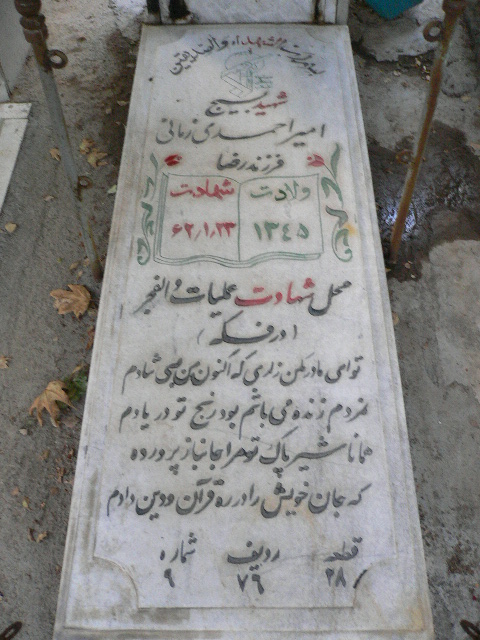 بسم رب الشهداء والصدیقین
شهید بسیج
امیر احمدی زمانی
فرزند رضا
ولادت شهادت
۱۳۴۵ ۶۲/۱/۲۳
محل شهادت عملیات والفجر
(در فکه)
تو ای مادر مکن زاری که اکنون من بسی شادم
نمردم زنده می باشم بود رنج تو در یادم
همانا شیر پاک تو مرا جانباز پرورده
که جان خویش را در ره قرآن و دین دادم
قطعه ردیف شماره
۲۸ ۷۶ ۹